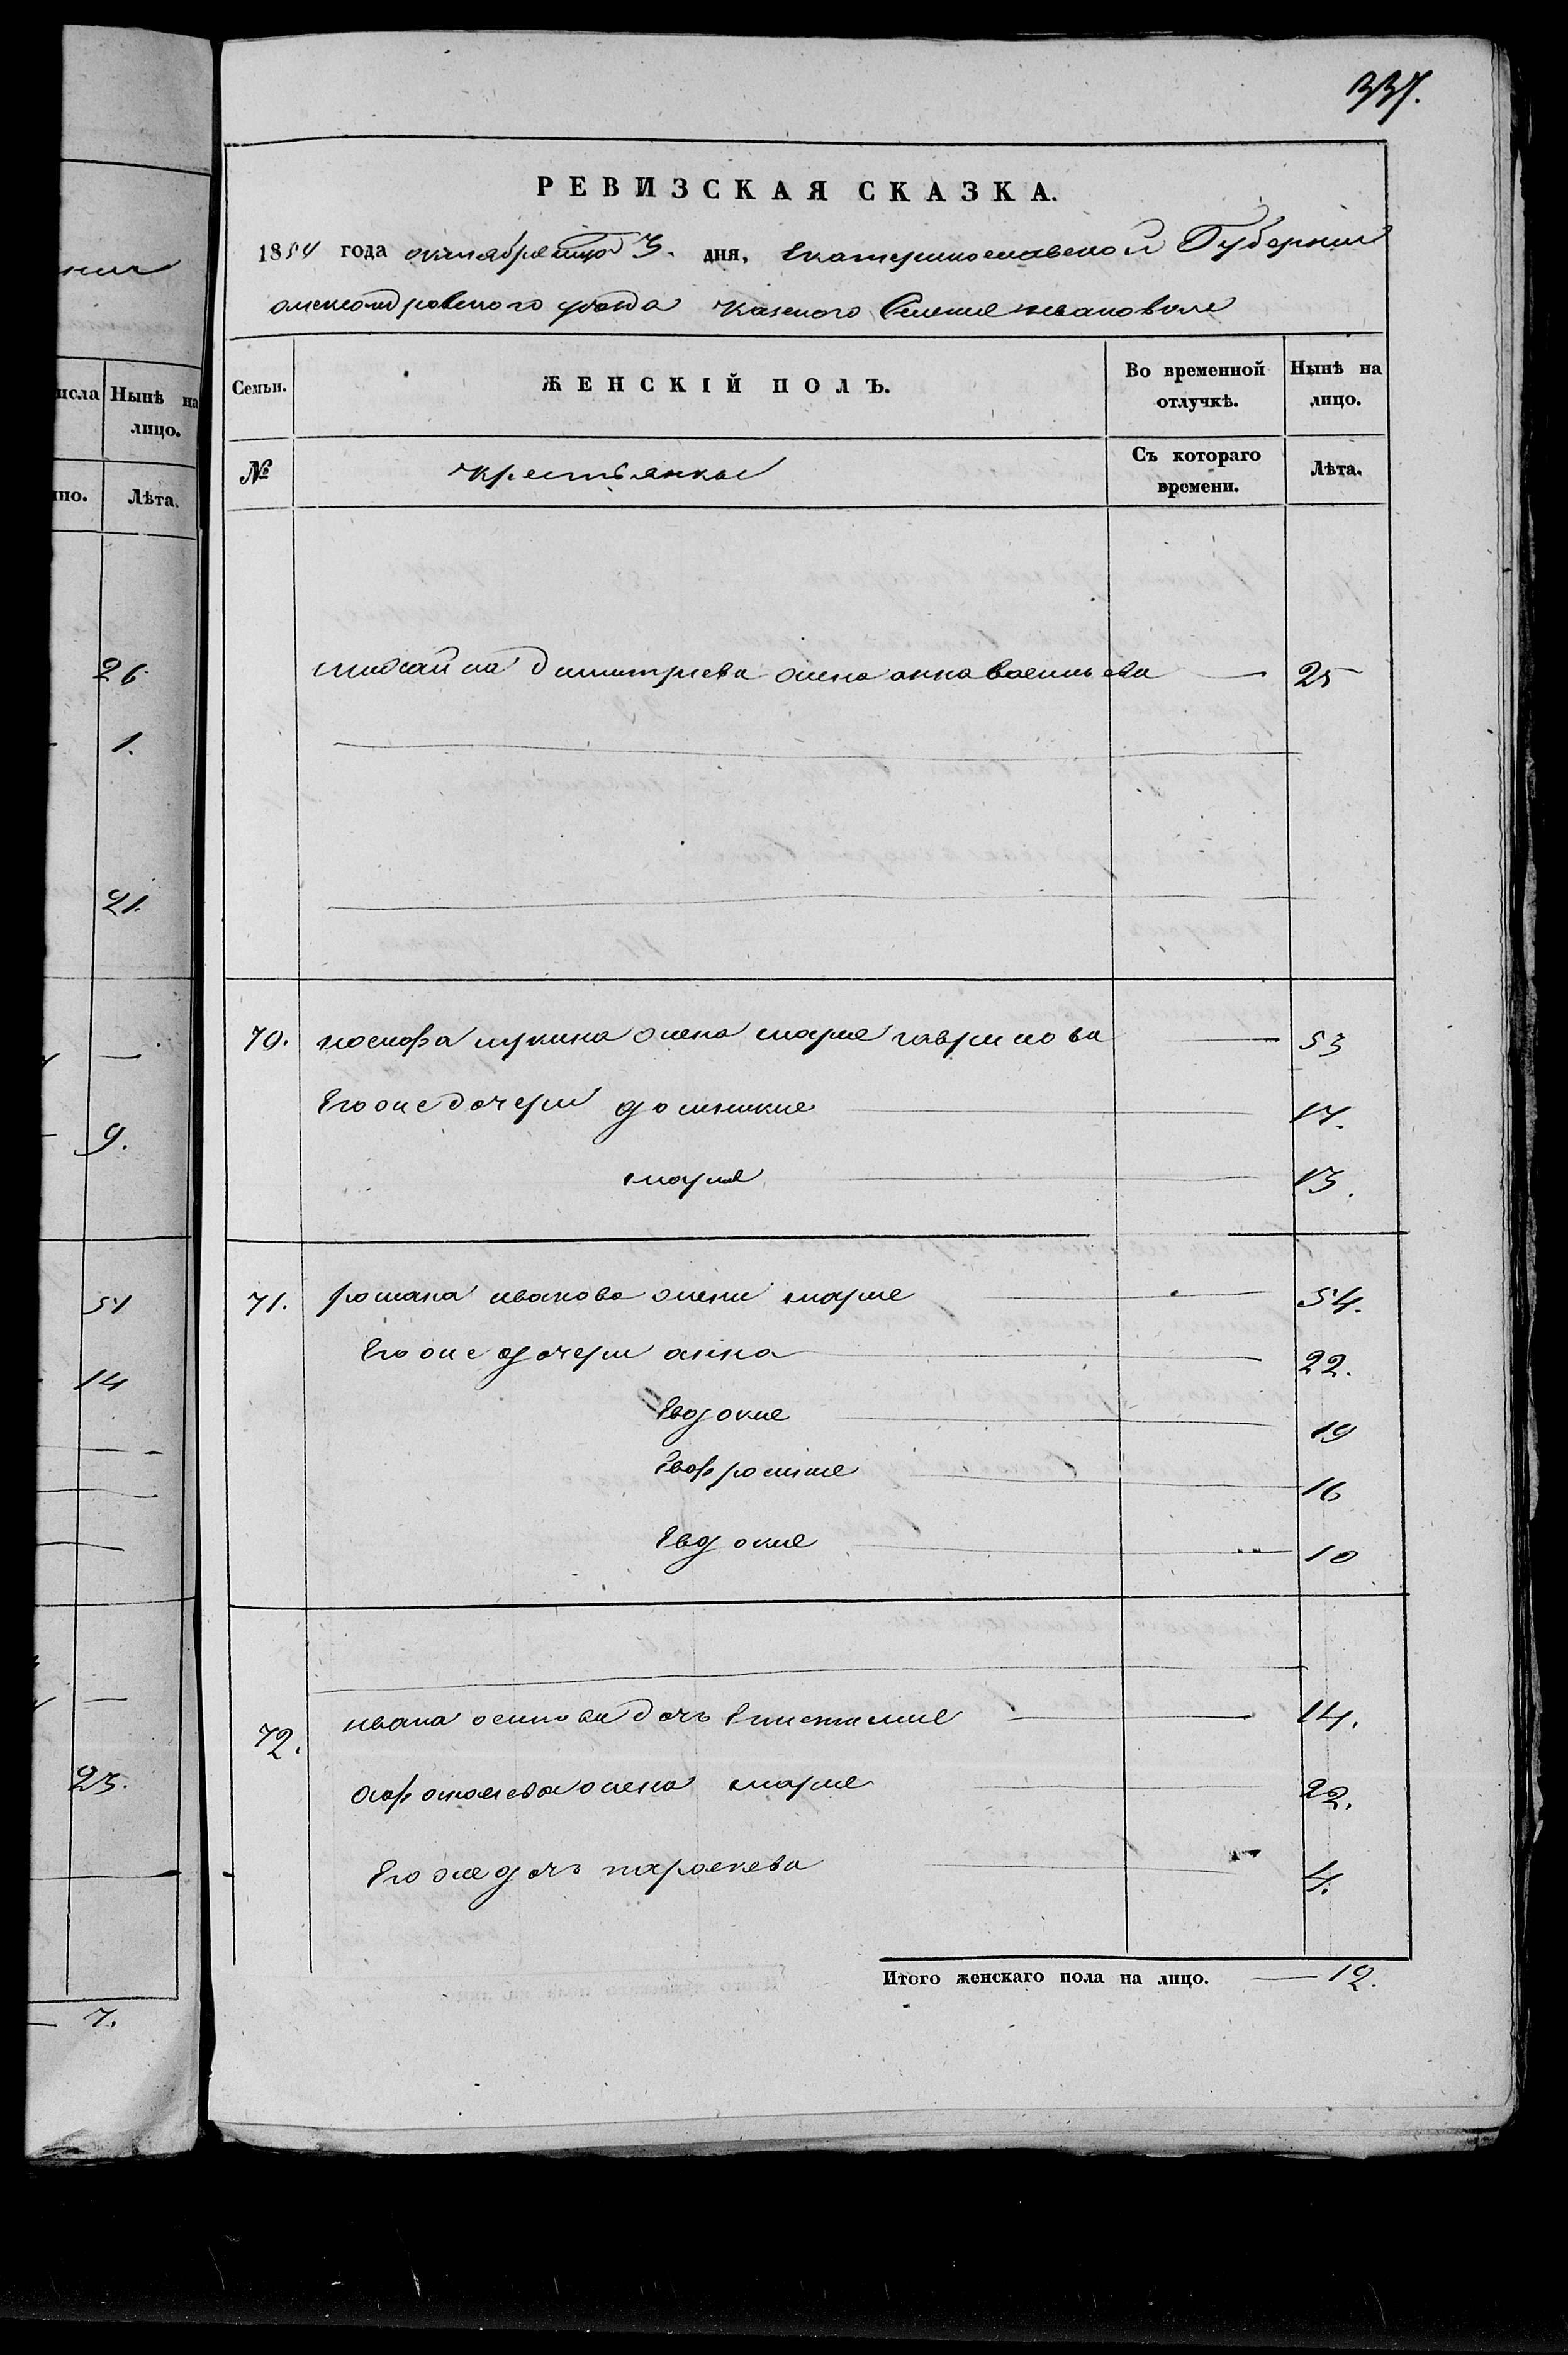 337.
РЕВИЗСКАЯ СКАЗКА.
1854 года октября 3. дня, Екатеринославской Губернии
александровского уезда казеного Селения
Семьи. ЖЕНСКІЙ ПОЛЪ. Во временной отлучкѣ. Нынѣ на лицо.
№ крестьянки Съ котораго времени. Лѣта.
михайла димитриева жена анна васильева — 25
70. иосифа лукина жена мария гаврилова — 53
Его же дочери домникия — 17.
мария — 13.
71. романа иванова жена мария — 54.
Его же дочери анна — 22.
Евдокия — 19
Евфросиния — 16
Евдокия — 10
72. ивана осипова дочь Епистимия — 14.
жена мария — 22.
Его же дочь параскева — 4.
Итого женскаго пола на лицо. — 12.
нии
исла Нынѣ на лицо.
но. Лѣта.
26.
1.
21.
—
9.
51
14
—
23.
7.